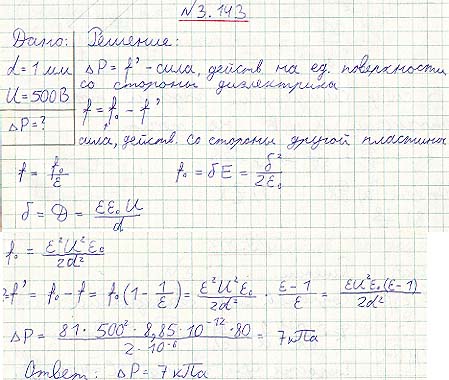 №3.143
Дано:
d = 1 мм
U = 500 В
ΔP = ?
Решение:
ΔP = f' - сила, действ. на ед. поверхности
со стороны диэлектрика
f = f₀ - f'
сила, действ. со стороны другой пластины
f = f₀/ε    f₀ = бE = б²/2ε₀
б = D = εε₀U/d
f₀ = ε²U²ε₀/2d²
f' = f₀ - f = f₀(1 - 1/ε) = ε²U²ε₀/2d² · ε-1/ε = εU²ε₀(ε-1)/2d²
ΔP = 81 · 500² · 8,85 · 10⁻¹² · 80/2 · 10⁻⁶ = 7 кПа
Ответ: ΔP = 7 кПа